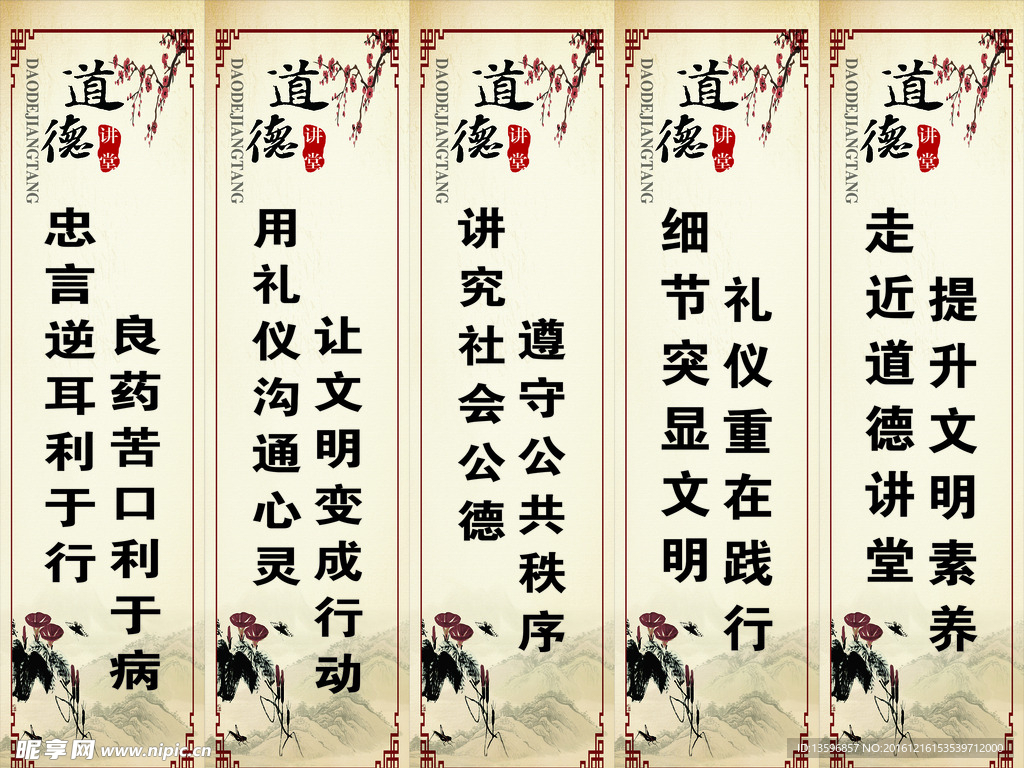 道德
讲堂
DAODEJIANGTANG
忠言逆耳利于行
良药苦口利于病
道德
讲堂
DAODEJIANGTANG
用礼仪沟通心灵
让文明变成行动
道德
讲堂
DAODEJIANGTANG
讲究社会公德
遵守公共秩序
道德
讲堂
DAODEJIANGTANG
细节突显文明
礼仪重在践行
道德
讲堂
DAODEJIANGTANG
走近道德讲堂
提升文明素养
昵享网 www.nipic.cn
ID:13596857 NO:20161216153539712000